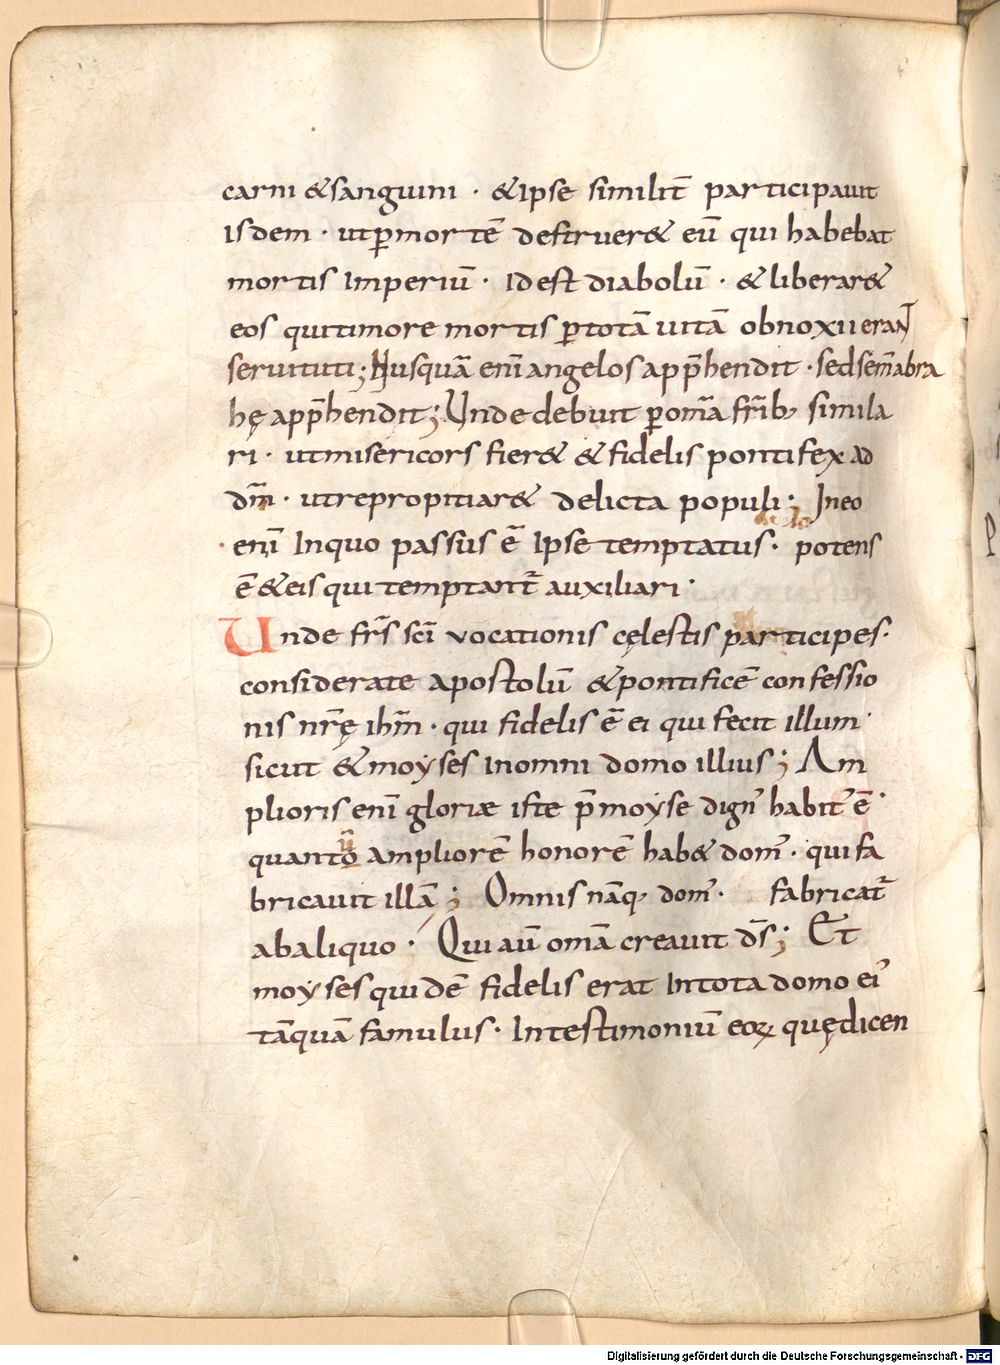 carni &sanguini · &ipse similit̄ participauit
isdem · utp̄mortē destruer& eū qui habebat
mortis imperiū · idest diabolū · & liberar&
eos quitimore mortis p̄totā uitā obnoxii erant
seruituti; Nusquā enī angelos app̄hendit · sedsem̄abra
hę app̄hendit; Unde debuit p̄om̄a fr̄ib; simila
ri · utmisericors fier& & fidelis pontifex ad
dm̄ · utrepropitiar& delicta populi; Ineo
enī inquo passus ē ipse temptatus · potens
ē &eis qui temptant̄ auxiliari ·
Unde frs̄ scī vocationis cęlestis participes ·
considerate apostolū &pontificē confessio
nis nr̄ę ihm̄ · qui fidelis ē ei qui fecit illum ·
sicut & moyses inomni domo illius; Am
plioris enī gloriæ iste p̄moyse dign' habit' ē ·
quanto ampliorē honorē hab& dom' · qui fa
bricauit illā; Omnis nāq; dom' · fabricat̄
abaliquo · Qui aū om̄a creauit ds̄; Et
moyses quidē fidelis erat intota domo ei'
tāquā famulus · Intestimoniū eoꝝ quędicen
Digitalisierung gefördert durch die Deutsche Forschungsgemeinschaft - DFG